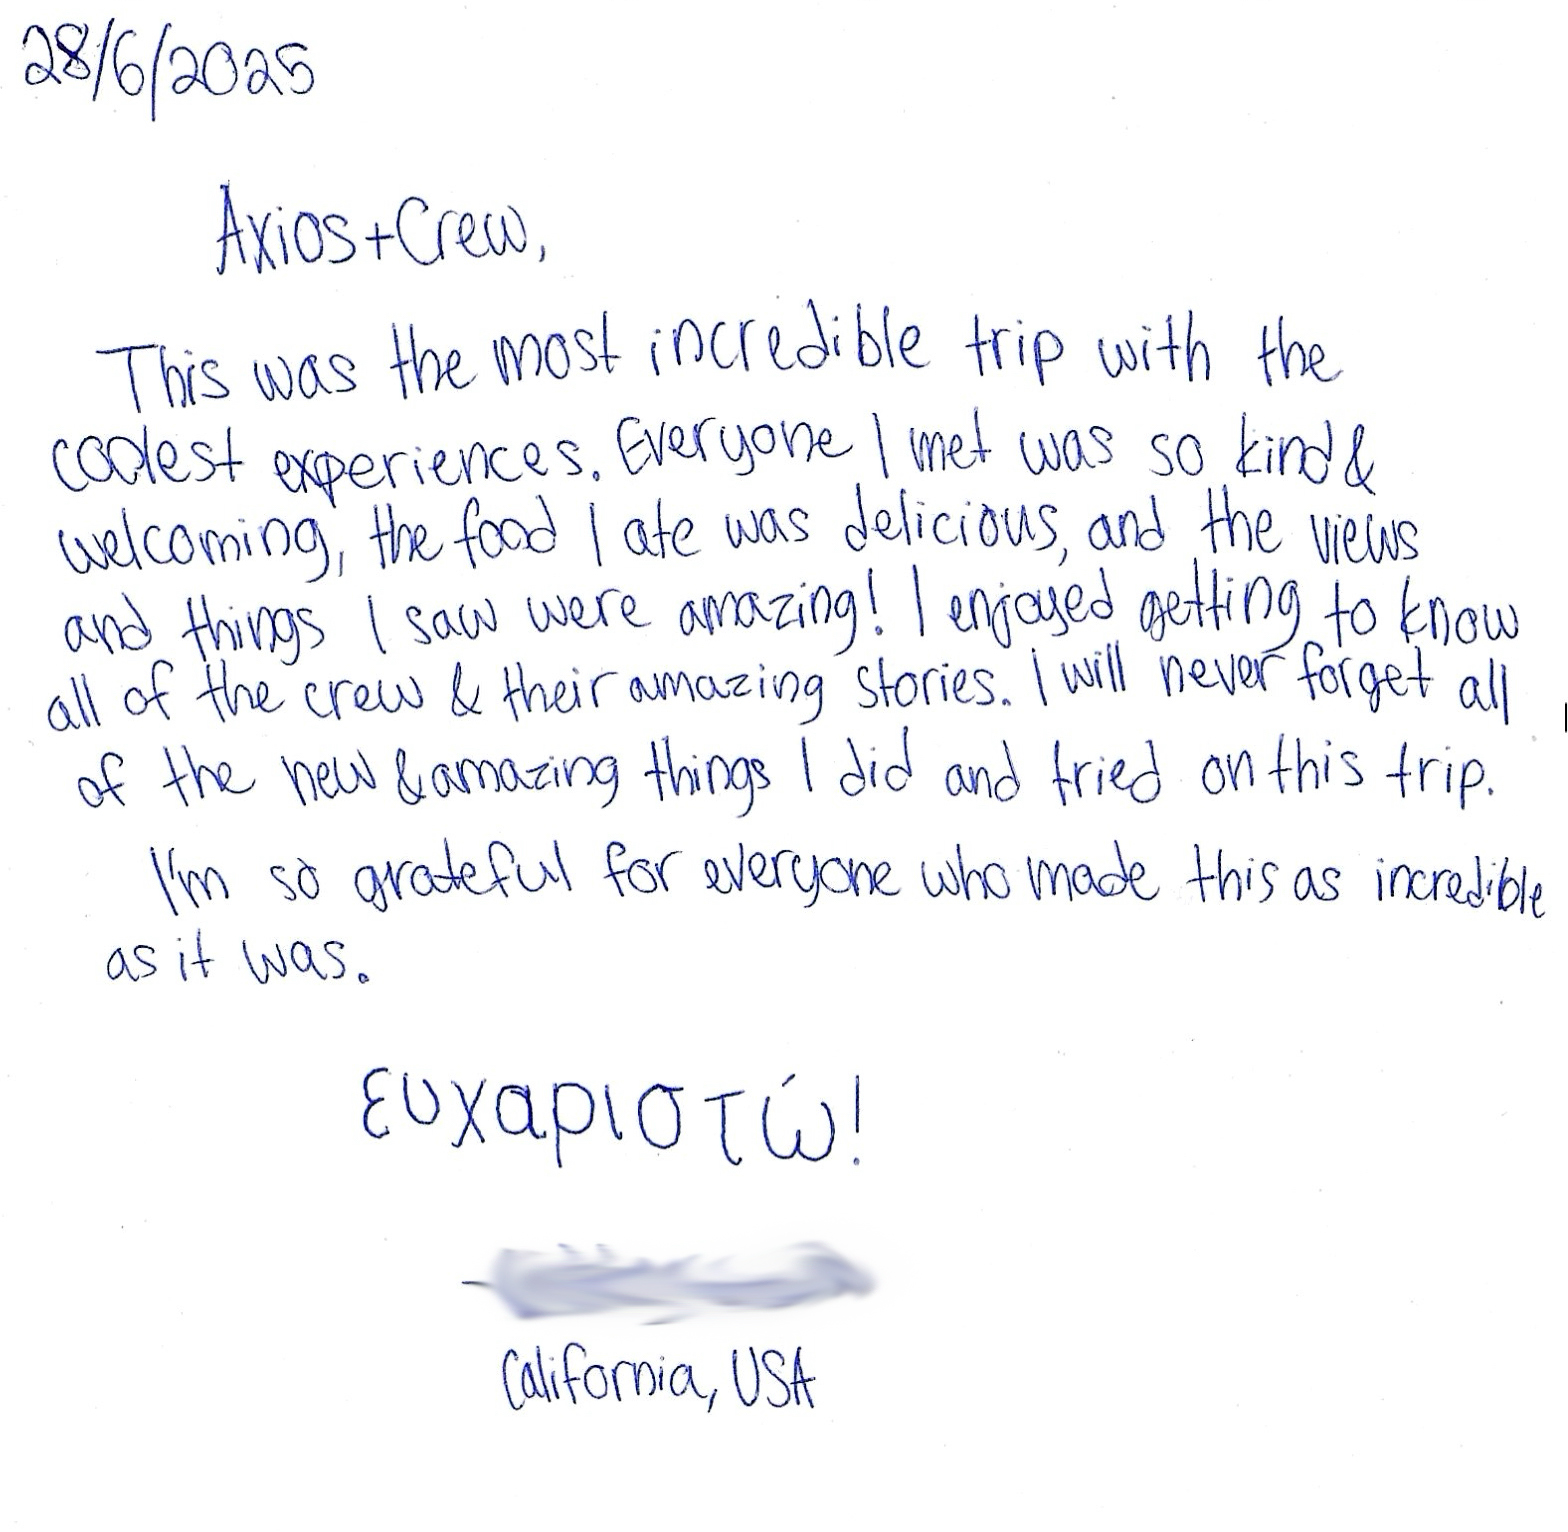 28/6/2025
Axios+Crew,
This was the most incredible trip with the
coolest experiences. Everyone I met was so kind &
welcoming, the food I ate was delicious, and the views
and things I saw were amazing! I enjoyed getting to know
all of the crew & their amazing stories. I will never forget all
of the new & amazing things I did and tried on this trip.
I'm so grateful for everyone who made this as incredible
as it was.
ευχαριστώ!
-
California, USA